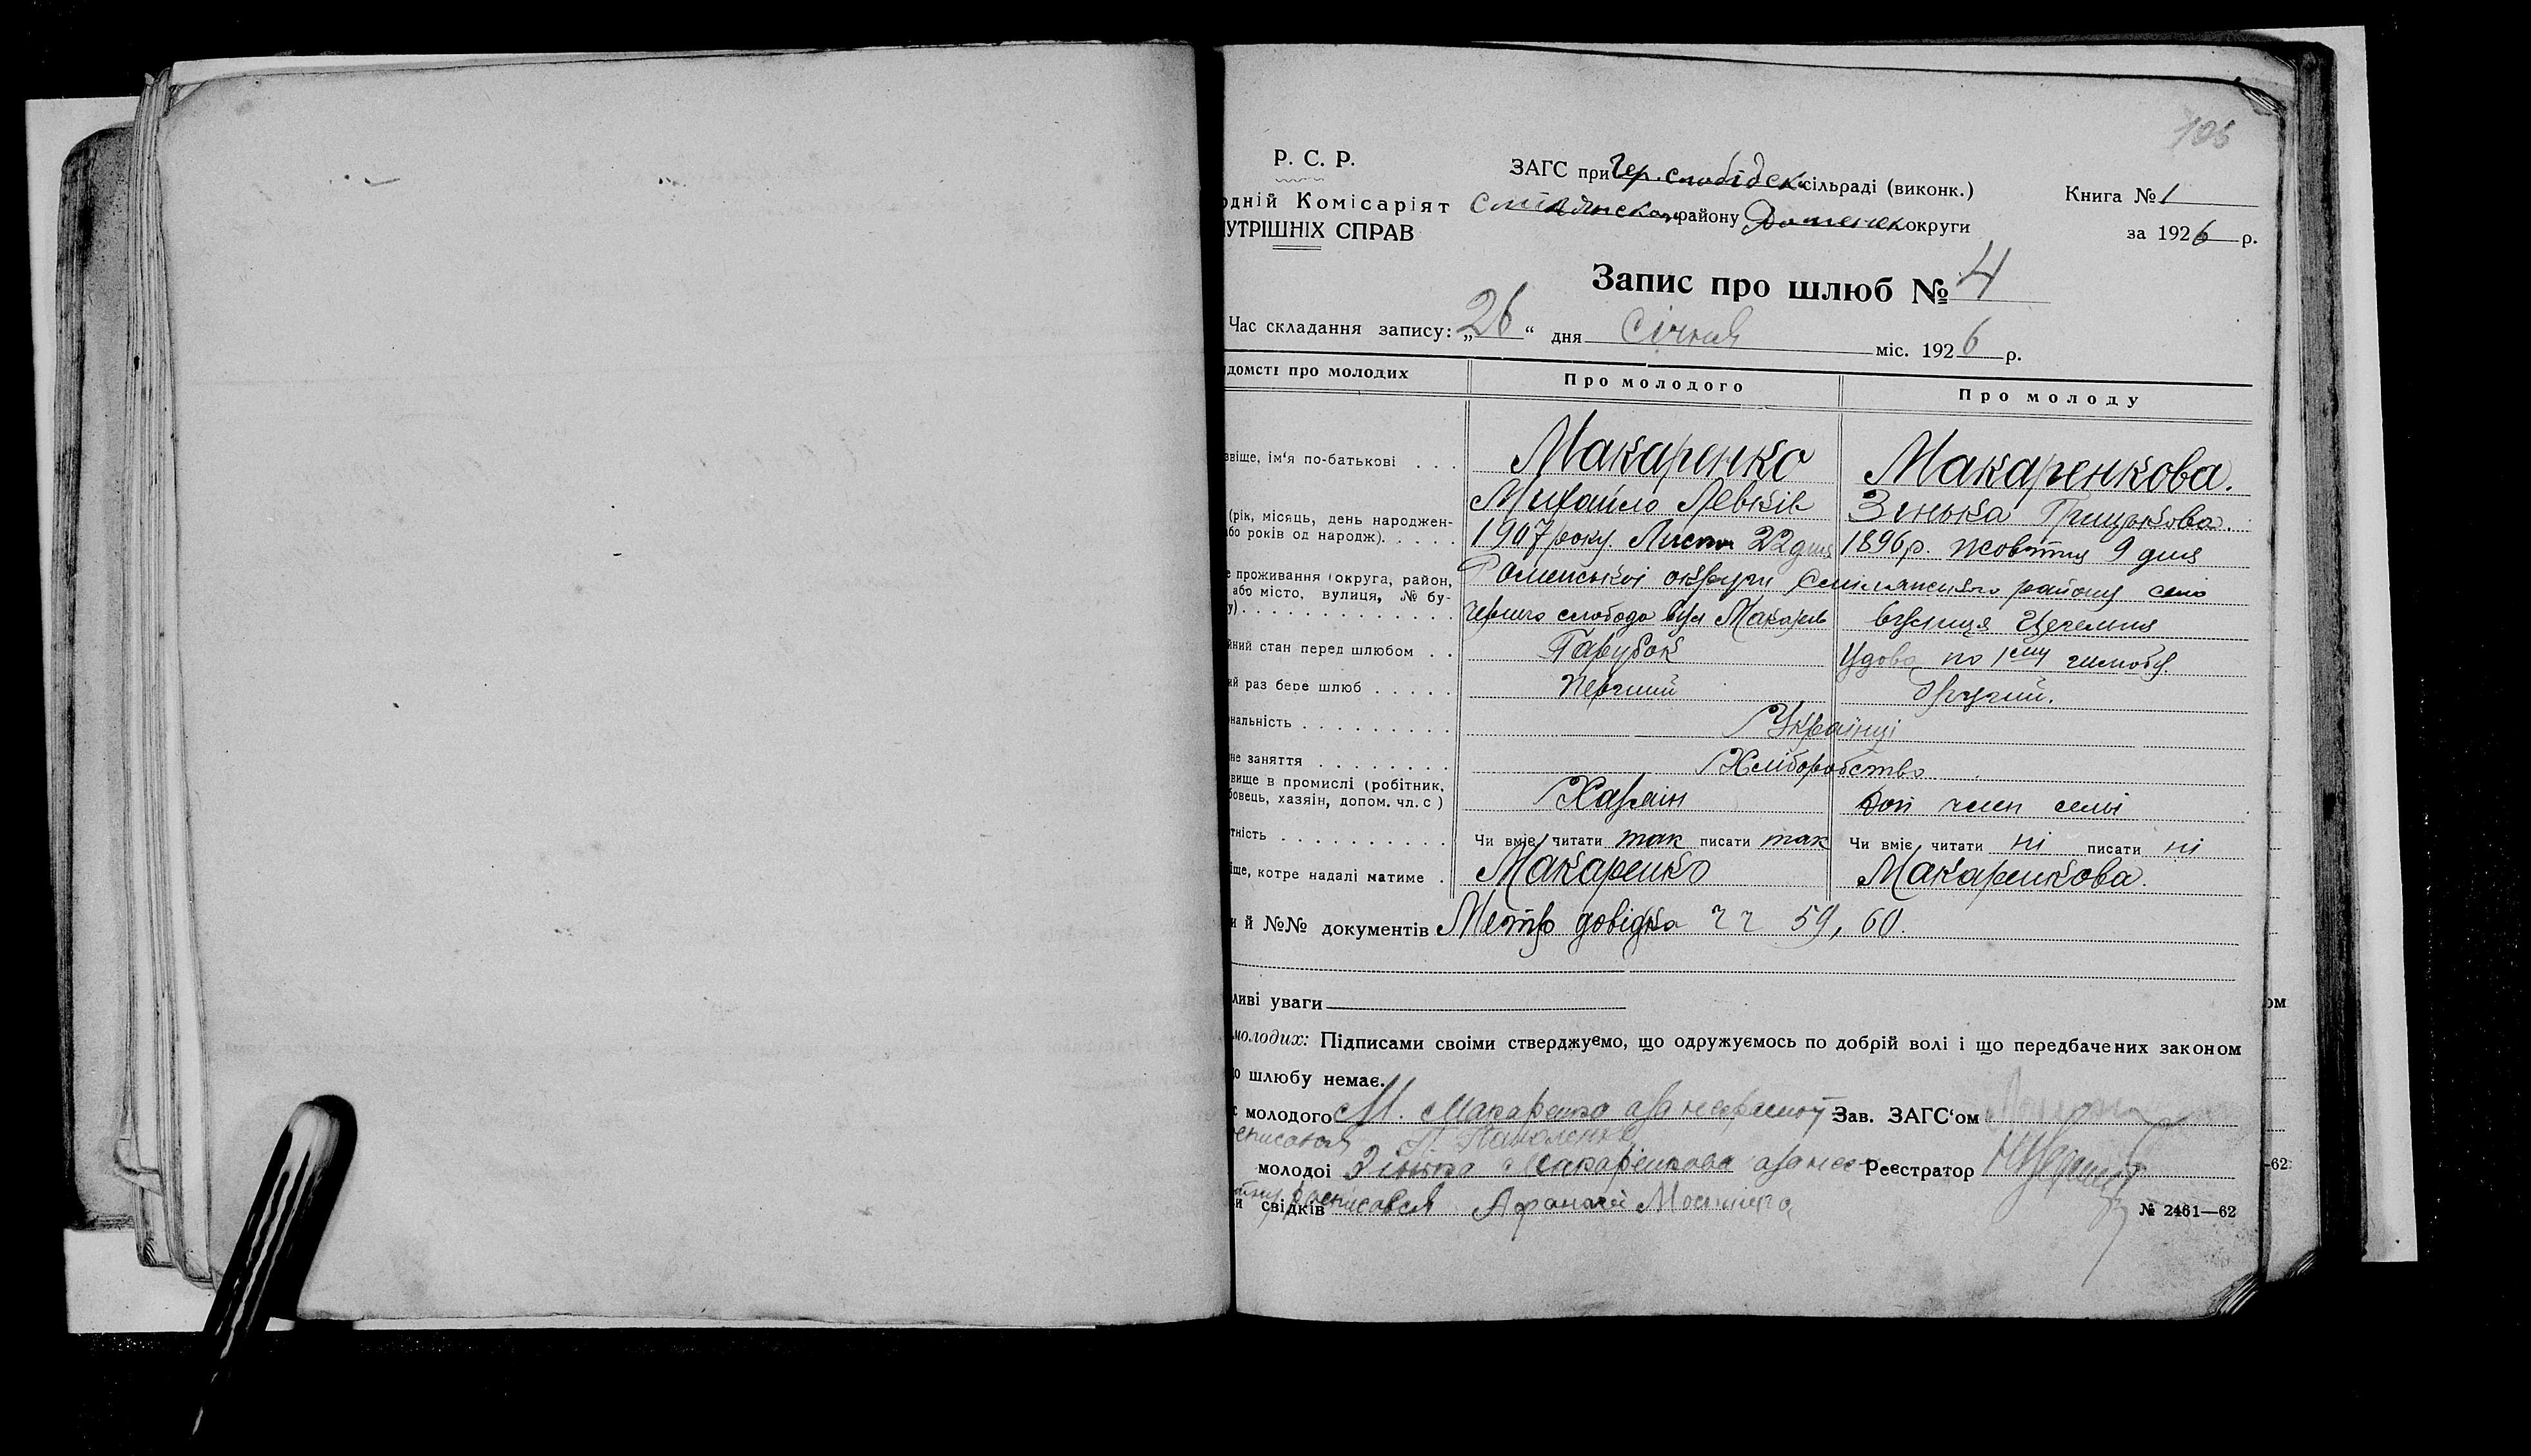 105
Р. С. Р.
ЗАГС при Чер. слобідск сільраді (виконк.)
Книга № 1
одній Комісаріят
району округи
УТРІШНІХ СПРАВ
за 1926 р.
Запис про шлюб № 4
Час складання запису: „26“ дня Січня міс. 1926 р.
ідомсті про молодих
Про молодого
Про молоду
звіще, ім'я по-батькові . . .
Макаренко
Макаренкова.
Михайло Левків
Зінька Грицькова.
(рік, місяць, день народжен-
бо років од народж). . . . .
1907 року. Листоп 22 дня
1896 р. Жовтня 9 дня
е проживання (округа, район,
або місто, вулиця, № бу-
у) . . . . . . . . . . . . .
Роменської округи Смілянського району село
слобода вул Макарів
вулиця
йний стан перед шлюбом . .
Парубок
Удова по 1му шлюбу.
ий раз бере шлюб . . . . .
Перший
Другий.
нальність . . . . . . . . .
Українці
не заняття . . . . . . . .
Хліборобство
вище в промислі (робітник,
бовець, хазяін, допом. чл. с )
Хазяін
Доп член семі
тність . . . . . . . . . .
Чи вміє читати так писати так
Чи вміє читати ні писати ні
іще, котре надалі матиме .
Макаренко
Макаренкова.
и й №№ документів Метр довідка чч 59, 60.
ливі уваги
молодих: Підписами своїми стверджуємо, що одружуємось по добрій волі і що передбачених законом
о шлюбу немає.
с молодого М. Макаренко
Зав. ЗАГС'ом
молодоі Зінька Макаренкова
Реєстратор
и свідків росписався Афанасій
№ 2461—62
ом
-62